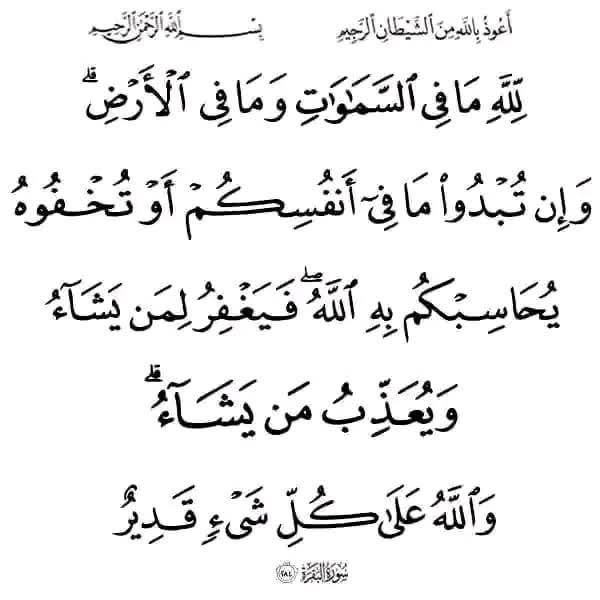 أَعُوذُ بِاللَّهِ مِنَ الشَّيْطَانِ الرَّجِيمِ بِسْمِ اللَّهِ الرَّحْمَنِ الرَّحِيمِ
لِّلَّهِ مَا فِي ٱلسَّمَٰوَٰتِ وَمَا فِي ٱلْأَرْضِ ۗ
وَإِن تُبْدُوا۟ مَا فِىٓ أَنفُسِكُمْ أَوْ تُخْفُوهُ
يُحَاسِبْكُم بِهِ ٱللَّهُ ۖ فَيَغْفِرُ لِمَن يَشَآءُ
وَيُعَذِّبُ مَن يَشَآءُ ۗ
وَٱللَّهُ عَلَىٰ كُلِّ شَىْءٍ قَدِيرٌ
سُورَةُ البَقَرَةِ ٢٨٤